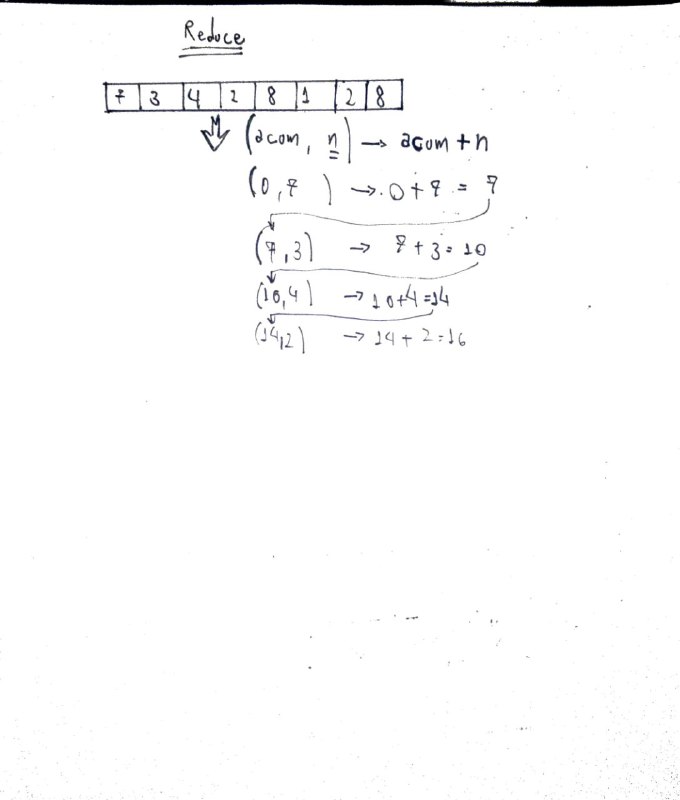 Reduce
7 3 4 2 8 1 2 8
(acum, n) → acum + n
(0, 7) → 0 + 7 = 7
(7, 3) → 7 + 3 = 10
(10, 4) → 10+4=14
(14, 2) → 14 + 2 = 16